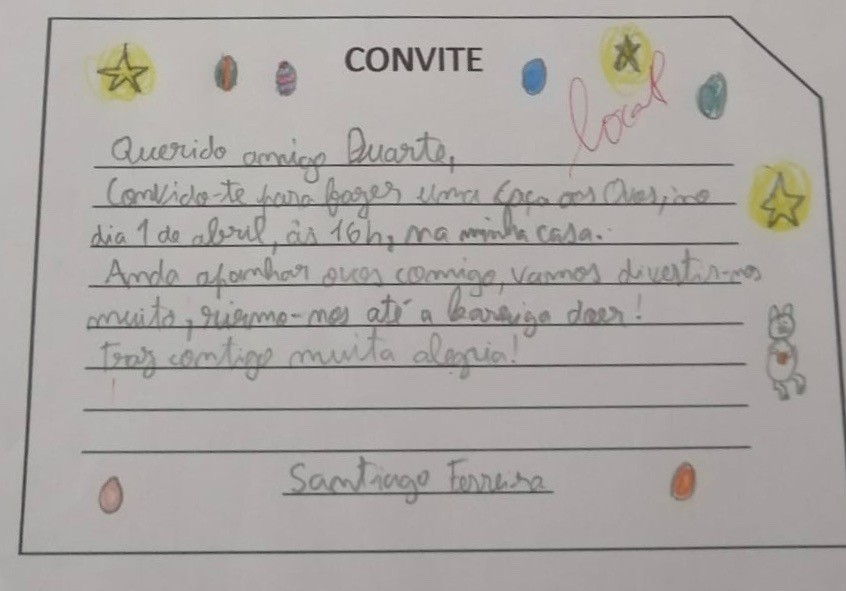 CONVITE
local
Querido amigo Duarte,
Convido-te para fazer uma Caça aos Ovos, no
dia 1 de abril, às 16h, na minha casa.
Anda apanhar ovos comigo, vamos divertir-nos
muito, rirmo-nos até a barriga doer!
Traz contigo muita alegria!
Santiago Ferreira